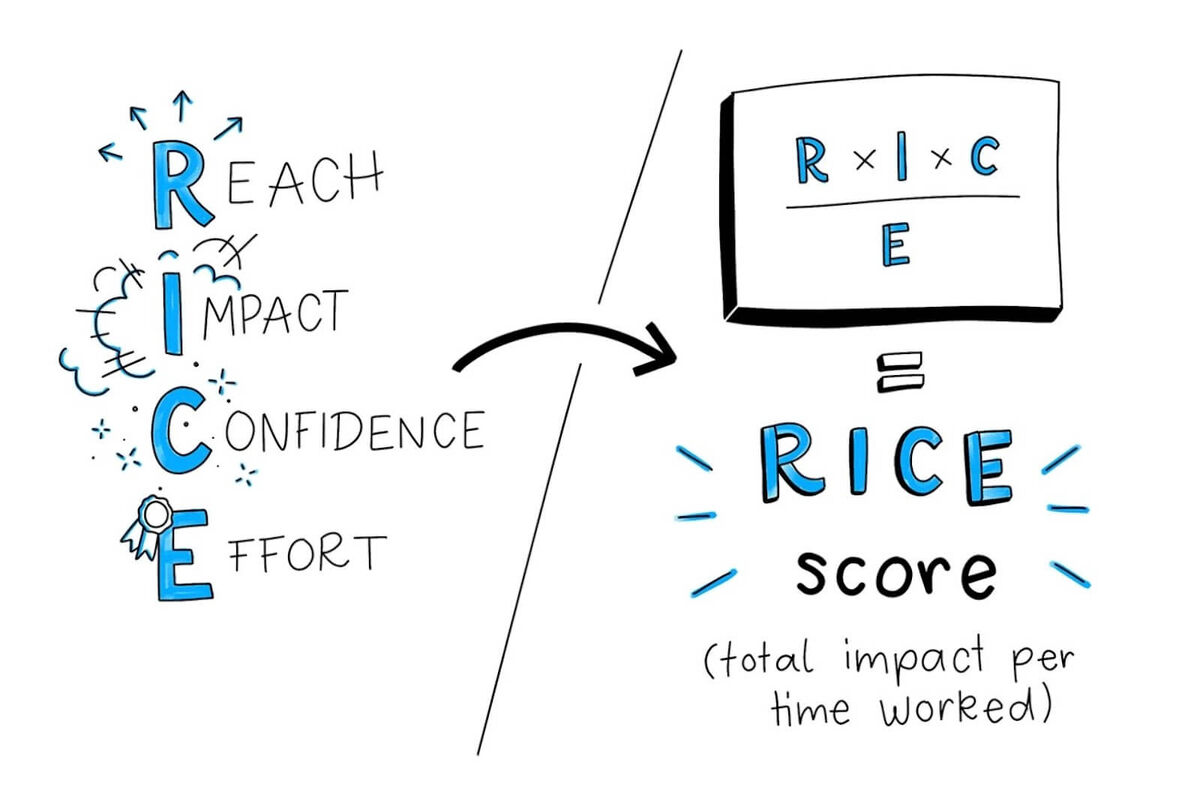 REACH
IMPACT
CONFIDENCE
EFFORT
R × I × C
E
=
RICE
score
(total impact per
time worked)